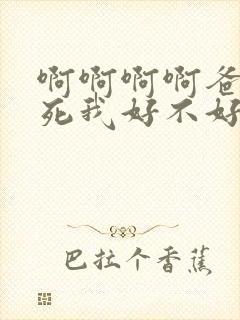 啊啊啊啊爸
死我好不好
巴拉个香蕉